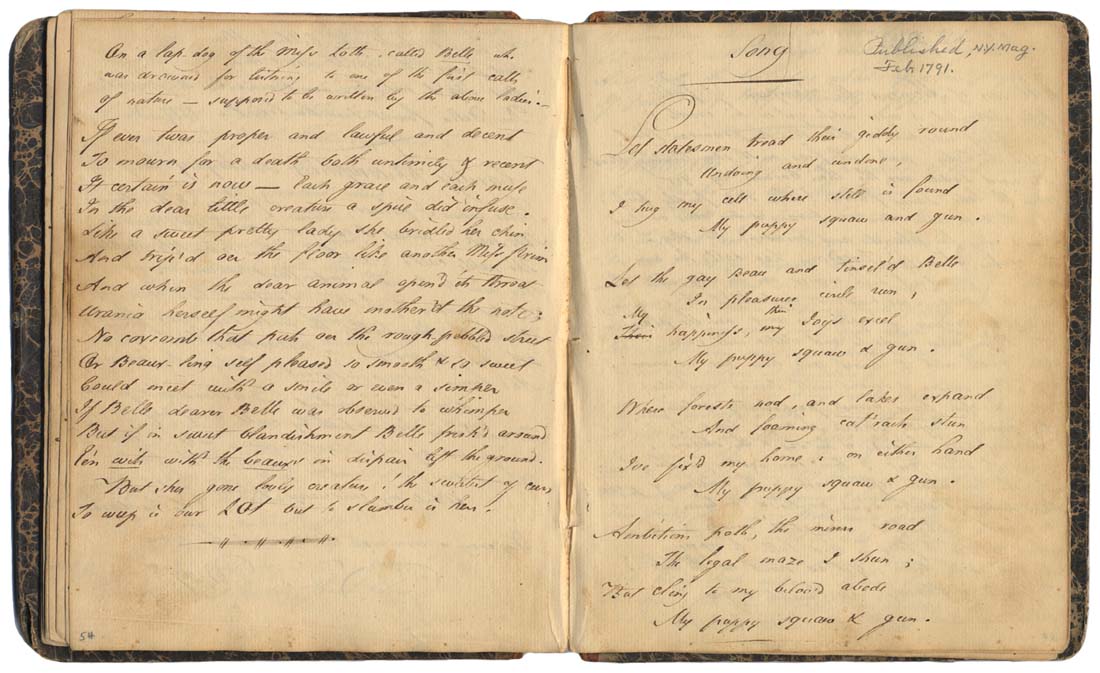 On a lap-dog of the Miss Lotts called Belle who
was drowned for listening to one of the first calls
of nature — supposed to be written by the above ladies —
If ever twas proper and lawful and decent
To mourn for a death both untimely & recent
It certain is now — Each grace and each muse
In the dear little creature a spice did infuse.
Like a sweet pretty lady she bridled her chin
And trip'd oer the floor like another Miss Prim
And when the dear animal open'd its throat
Urania herself might have mother'd the note
No coxcomb that pick oer the rough pebbled street
Or Beaux-ling self pleased so smooth & so sweet
Could meet with a smile or even a simper
If Belle dearer Belle was observed to whimper
But if in sweet blandishment Belle frisk'd around
E'en wits with the beaux in dispair left the ground.
But shes gone lovely creature! the sweetest of curs
To weep is our LOT but to slumber is hers.
54
Song
Published, N.Y. Mag.
Feb 1791.
Let statesmen tread their giddy round
Undoing and undone,
I hug my cell where still is found
My puppy squaw and gun.
Let the gay Beau and tinsel'd Belle
In pleasures circle run;
My their
Their happiness, my Joys excel
My puppy squaw & gun.
Where forests nod, and lakes expand
And foaming cat'racts stun
Ive fix'd my home & on either hand
My puppy squaw & gun.
Ambitions path, the misers road
The legal maze I shun;
But cling to my belov'd abode
My puppy squaw & gun.